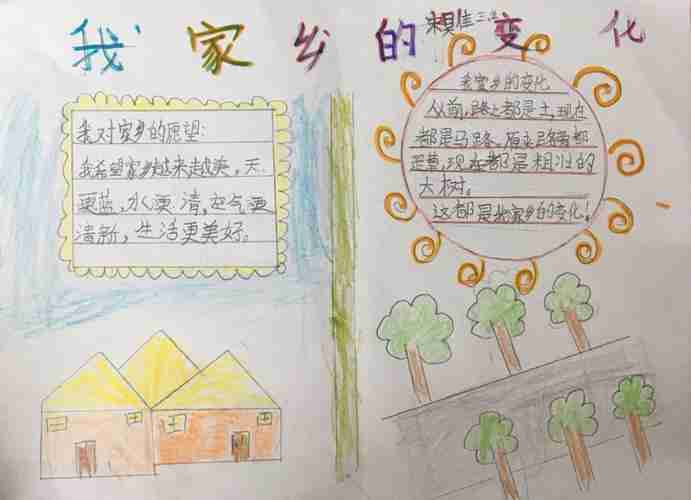 我家乡的变化
三
我对家乡的愿望:
我希望家乡越来越美,天
更蓝,水更清,空气更
清新,生活更美好。
我家乡的变化
从前,路上都是土,现在
都是马路。原来路旁都
是草,现在都是粗壮的
大树。
这都是我家乡的变化!